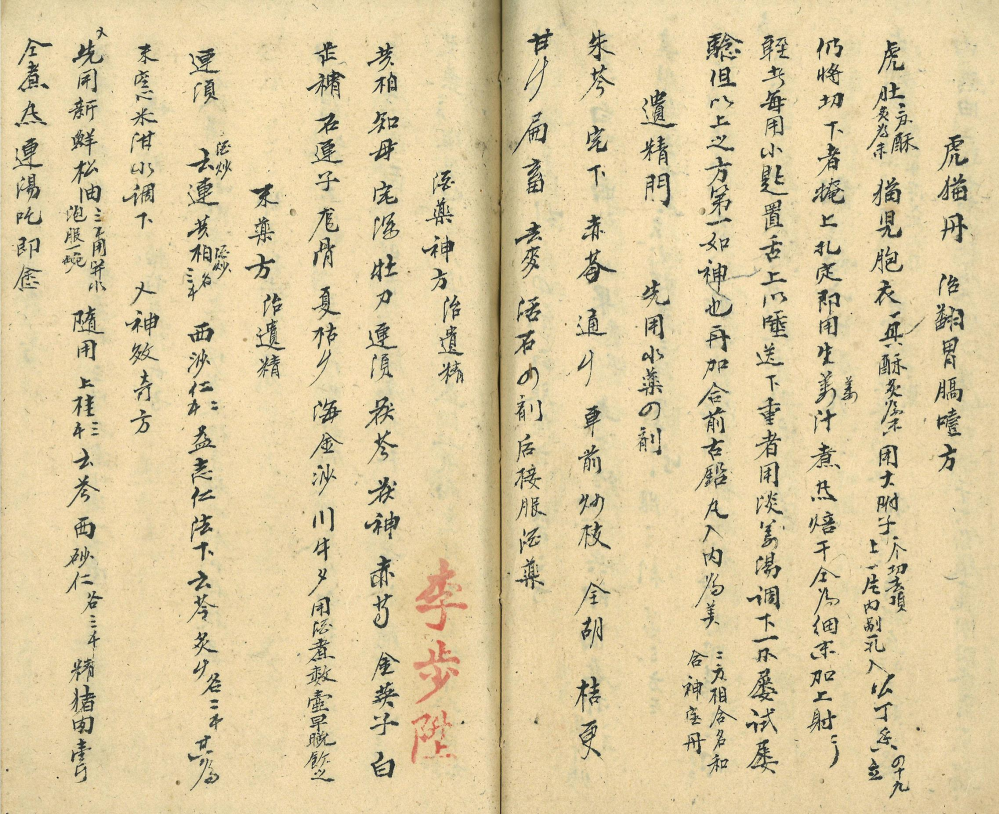 虎猫丹 治翻胃膈噎方
虎肚一亦酥炙為末 猫児胞衣一具酥炙漈 用大附子一个切去頂上一片内剮孔入公丁香四十九立
仍將切下者掩上扎定即用生姜汁煮熟焙干仝為細末加上射一
輕者每用小匙置舌上以唾送下重者用淡姜湯调下一日屡試屡
驗但以上之方第一如神也再加合前古鉛丸入内為美 二方相合名和合神室丹
遺精門 先用水藥四剤
朱苓 宅下 赤苓 通 車前 炒枝 全胡 桔更
甘 扁畜 去麥 活石 四剤后接服酒藥
酒藥神方 治遺精
共柏 知母 宅瀉 牡力 連須 茯苓 茯神 赤芍 金英子 白
芷 補 石連子 尨骨 夏枯 海金沙 川牛夕 用酒煮数壺早晚飲之
李步陞
末藥方 治遺精
連須酒炒 去連 共柏酒炒 各三 西沙仁二 益志仁法下 去苓 炙 各二 共為
末 米泔水调下 又神效奇方
又先用新鮮松油三 用井水泡服一碗 随用上桂三 去苓 西砂仁各三 精猪肉
仝煮熟連湯吃即愈